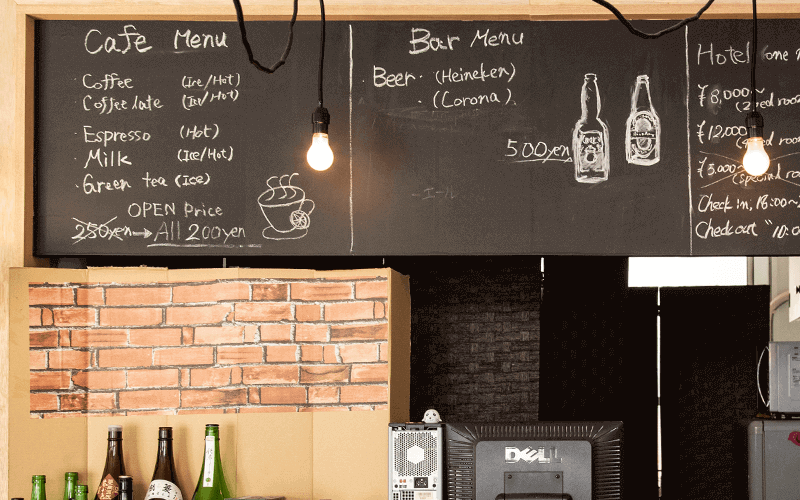 Cafe Menu
· Coffee (Ice/Hot)
· Coffee late (Ice/Hot)
· Espresso (Hot)
· Milk (Ice/Hot)
· Green tea (Ice)
OPEN Price
250yen→All 200yen
Bar Menu
· Beer · (Heineken)
· (Corona)
500yen
エール
Hotel one
¥8,000~
¥12,000
¥5,000~
(special room
Check in, 18:00~
Check out " 10:0
DELL